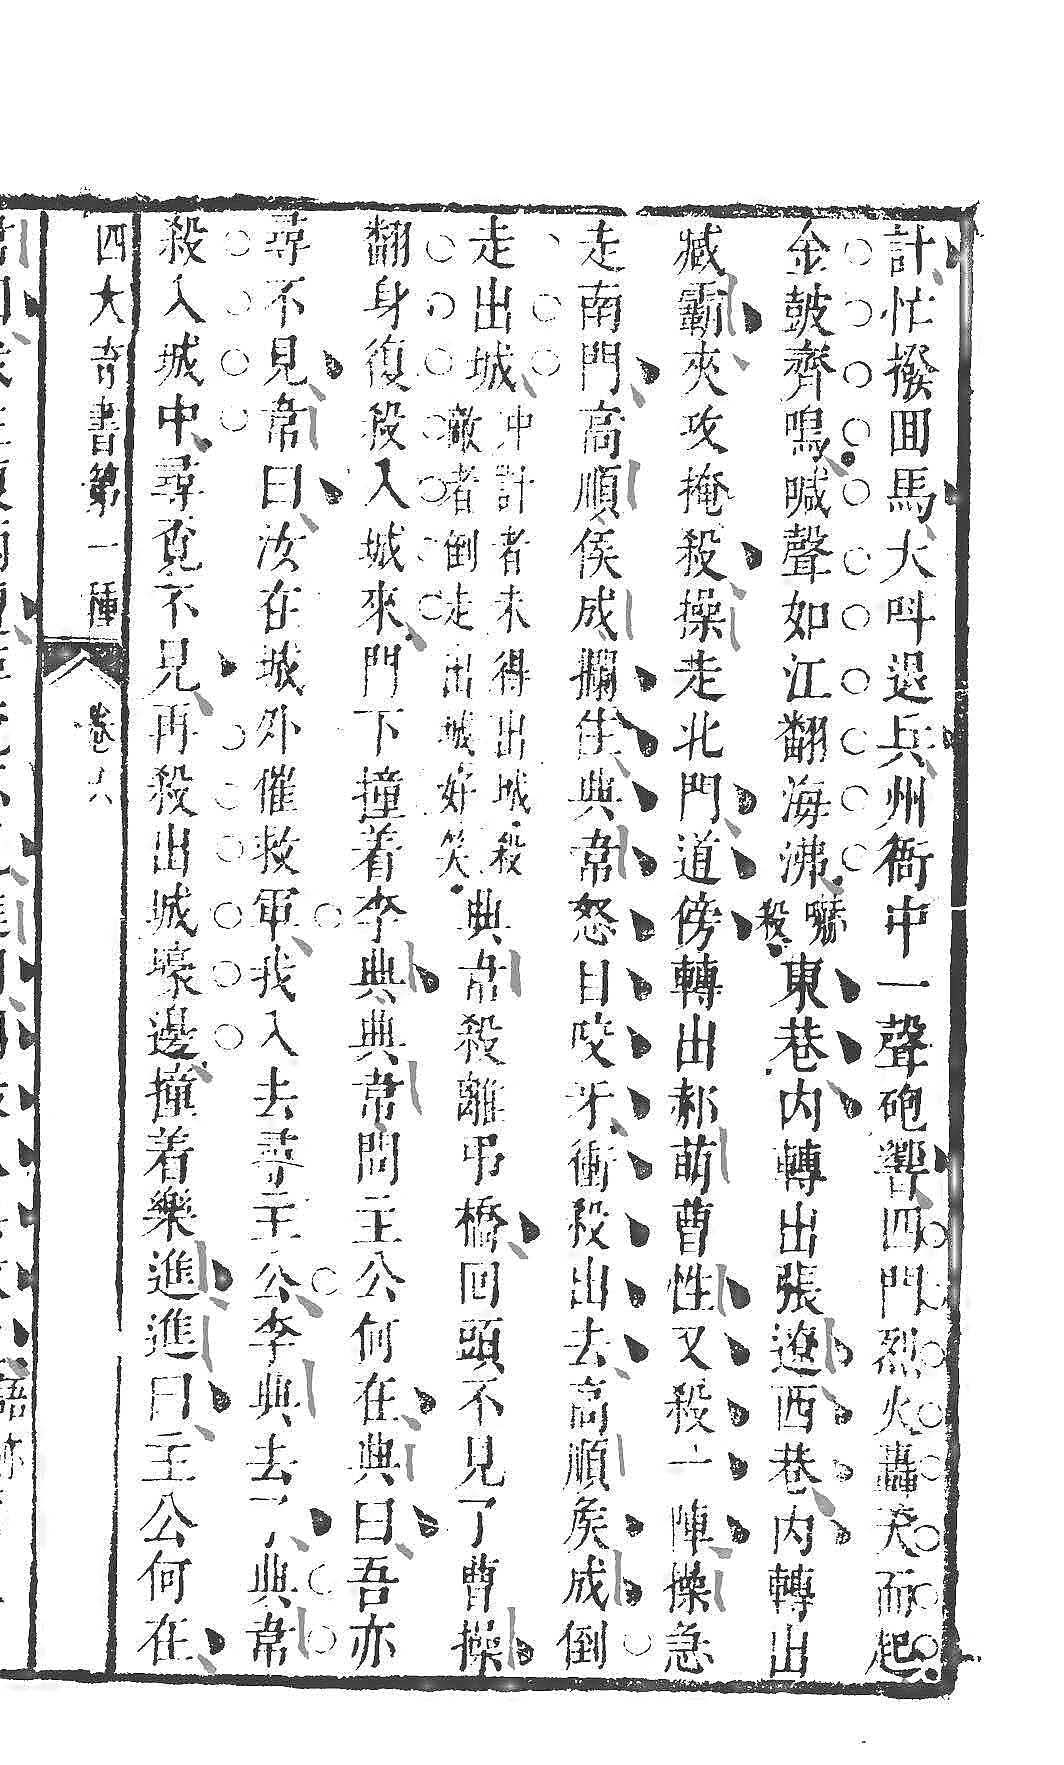 計忙撥囬馬大呌退兵州衙中一聲砲響四門烈火轟天而起
金鼓齊鳴喊聲如江翻海沸嚇殺東巷內轉出張遼西巷內轉出
臧霸夾攻掩殺操走北門道傍轉出郝萌曹性又殺一陣操急
走南門高順侯成攔住典韋怒目咬牙衝殺出去高順侯成倒
走出城中計者未得出城殺敵者倒走出城好笑典韋殺離吊橋回頭不見了曹操
翻身復殺入城來門下撞着李典典韋問主公何在典曰吾亦
尋不見韋曰汝在城外催救軍我入去尋主公李典去了典韋
殺入城中尋覓不見再殺出城壕邊撞着樂進進曰主公何在
四大奇書第一種 卷六